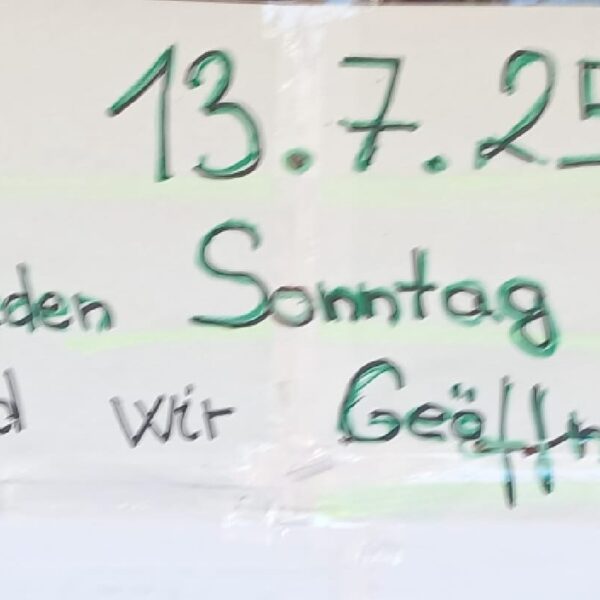 13.7.25
den Sonntag
d wir Geöffn